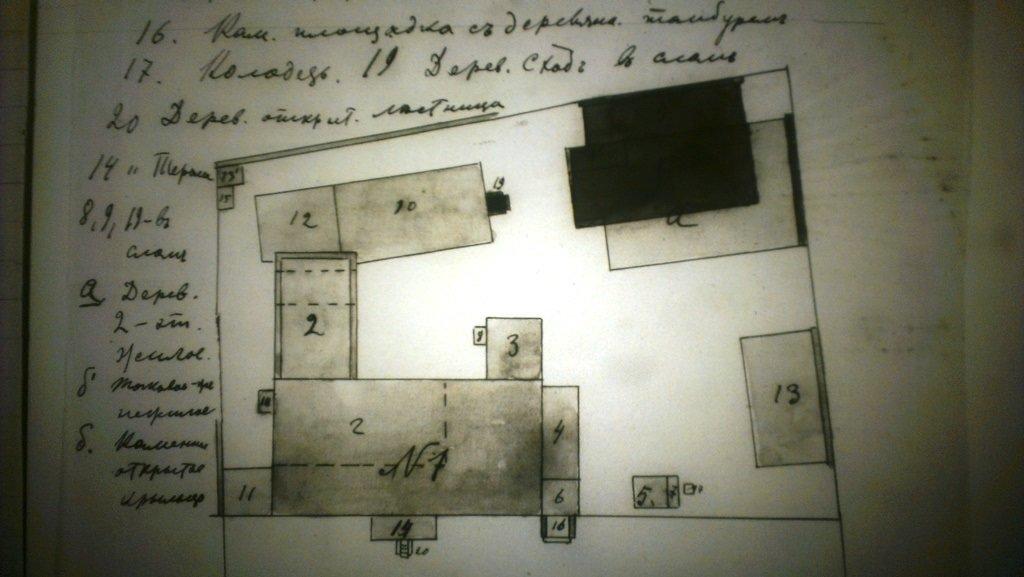 16. Кам. площадка съ деревян. тамбуромъ
17. Колодецъ. 19 Дерев. Сходъ въ
20 Дерев. открыт. лестница
14 " Терраса
8, 9, 19-въ
а Дерев.
2-эт.
жилое.
б'
б. Каменн.
открытое
крыльцо
13'
15
12
10
19
а
2
9
3
13
18
2
№1
4
11
6
5.
7
14
20
16